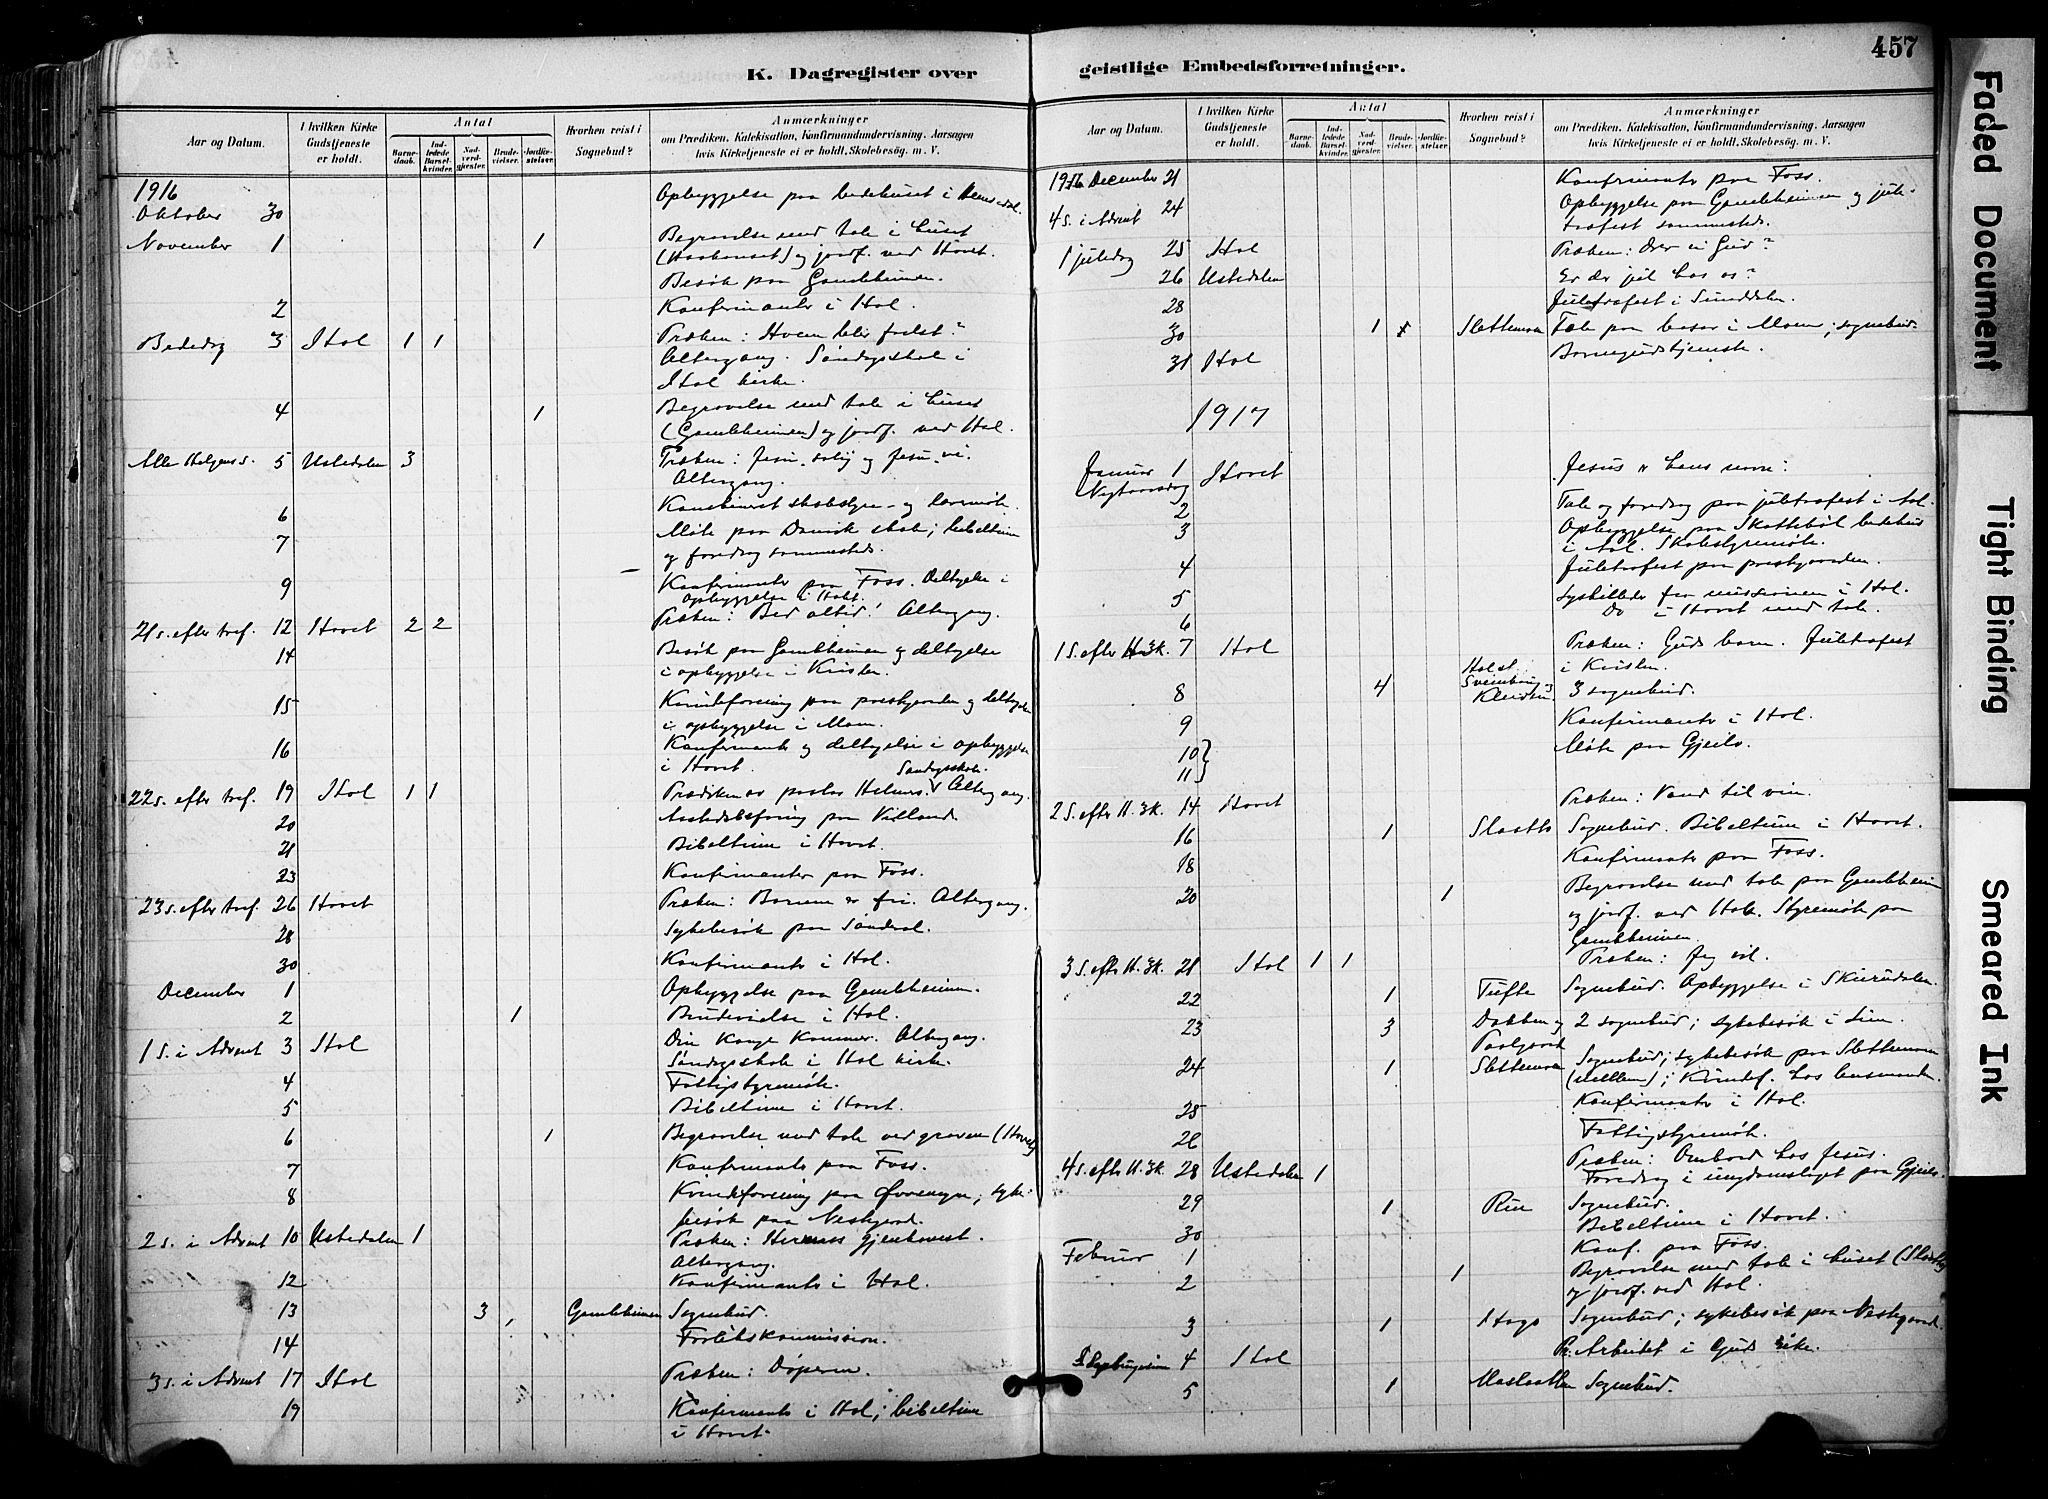 457
K. Dagregister over
geistlige Embedsforretninger.
Aar og Datum.
I hvilken Kirke Gudstjeneste er holdt.
Antal
Barnedaab.
Indledede Barselkvinder.
Nadverdgjester.
Brudevielser.
Jordfæstelser.
Hvorhen reist i Sognebud?
Anmærkninger
om Prædiken, Katekisation, Konfirmandundervisning. Aarsagen
hvis Kirketjeneste ei er holdt, Skolebesøg. m. V.
1916
Oktober 30 Opbyggelse paa bedehuset i Hemsedal.
November 1 1 Begravelse med tale i huset
og jordf. ved Hovet.
Besøk paa Gamleheimen.
2 Konfirmanter i Hol.
Bededag 3 Hol 1 1 Præken: Hvem blir frelst?
Altergang. Søndagsskole i
Hol kirke.
4 1 Begravelse med tale i huset
(Gamleheimen) og jordf. ved Hol.
Alle Helgens s. 5 Ustedalen 3 Præken: Jesu og Jesu vei.
Altergang.
6 Kombineret skolestyre- og lærermøte.
7 Møte paa skole; bibeltime
og foredrag sammesteds.
9 Konfirmanter paa Foss. Deltagelse i
opbyggelse i Holet.
21 s. efter tref. 12 Hovet 2 2 Præken: Bed altid! Altergang.
14 Besøk paa Gamleheimen og deltagelse
i opbyggelse i Kvislen.
15 Kvindeforening paa prestgaarden og deltagelse
i opbyggelse i Moen.
16 Konfirmanter og deltagelse i opbyggelse
i Hovet.
22 s. efter tref. 19 Hol 1 1 Prædiken av pastor Søndagsskole. Altergang.
20 Aastedsbefaring paa Villand.
21 Bibeltime i Hovet.
23 Konfirmanter paa Foss.
23 s. efter tref. 26 Hovet Præken: Barnene er fri. Altergang.
28 Sykebesøk paa Sønderal.
30 Konfirmanter i Hol.
December 1 Opbyggelse paa Gamleheimen.
2 1 Brudevielse i Hol.
1 s. i Advent 3 Hol Din Konge kommer. Altergang.
Søndagsskole i Hol kirke.
4 Fattigstyremøte.
5 Bibeltime i Hovet.
6 1 Begravelse med tale ved graven (Hovet)
7 Konfirmanter paa Foss.
8 Kvindeforening paa syke-
besøk paa Neskgaard.
2 s. i Advent 10 Ustedalen 1 Præken: Herrens gjenkomst.
Altergang.
12 Konfirmanter i Hol.
13 3 Gamleheimen Sognebud.
14 Forlikskommission.
3 s. i Advent 17 Hol Præken: Døperen.
19 Konfirmanter i Hol; bibeltime
i Hovet.
Aar og Datum.
I hvilken Kirke Gudstjeneste er holdt.
Antal
Barnedaab.
Indledede Barselkvinder.
Nadverdgjester.
Brudevielser.
Jordfæstelser.
Hvorhen reist i Sognebud?
Anmærkninger
om Prædiken, Katekisation, Konfirmandundervisning. Aarsagen
hvis Kirketjeneste ei er holdt, Skolebesøg. m. V.
1916 December 21 Konfirmanter paa Foss.
4 s. i Advent 24 Opbyggelse paa Gamleheimen og jule-
træfest sammesteds.
1 juledag 25 Hol Præken: Er der en Gud?
26 Ustedalen Er der jul hos os?
28 Juletræfest i Sunddalen.
30 1 Slettemoen Tale paa basar i Moen; sognebud.
31 Hol Barnegudstjeneste.
1917
Januar 1 Hovet Jesus er hans navn.
Nytaarsdag
2 Tale og foredrag paa juletræfest i Aal.
3 Opbyggelse paa Skottebøl bedehus
i Aal. Skolestyremøte.
4 Juletræfest paa prestgaarden.
5 Lysbilleder fra missionen i Hol.
6 Do i Hovet med tale.
1 s. efter H. 3 k. 7 Hol Præken: Guds barn. Juletræfest
i Kvislen.
8 4 3 sognebud.
9 Konfirmanter i Hol.
10 Møte paa Gjeilo.
11
2 s. efter H. 3 k. 14 Hovet Præken: Vand til vin.
16 1 Slaatto Sognebud. Bibeltime i Hovet.
18 Konfirmanter paa Foss.
20 1 Begravelse med tale paa Gamleheimen
og jordf. ved Hol. Styremøte paa
Gamleheimen.
3 s. efter H. 3 k. 21 Hol 1 1 Præken: Jeg vil.
22 1 Tufte Sognebud. Opbyggelse i Skurudalen.
23 3 Dokken og Paalgaard 2 sognebud; sykebesøk i Lien.
24 1 Slettemoen Sognebud; sykebesøk paa Slettemoen
(mellem); Kvindef. hos lensmanden.
25 Konfirmanter i Hol.
26 Fattigstyremøte.
4 s. efter H. 3 k. 28 Ustedalen 1 Præken: Ombord hos Jesus.
Foredrag i ungdomslaget paa Gjeilo.
29 1 Sognebud.
30 Bibeltime i Hovet.
Februar 1 Konf. paa Foss.
2 1 Begravelse med tale i huset
og jordf. ved Hol.
3 1 Hago Sognebud; sykebesøk paa Neskgaard.
4 Hol Pr: Arbeidet i Guds rike.
5 1 Sognebud.
Faded Document
Tight Binding
Smeared Ink